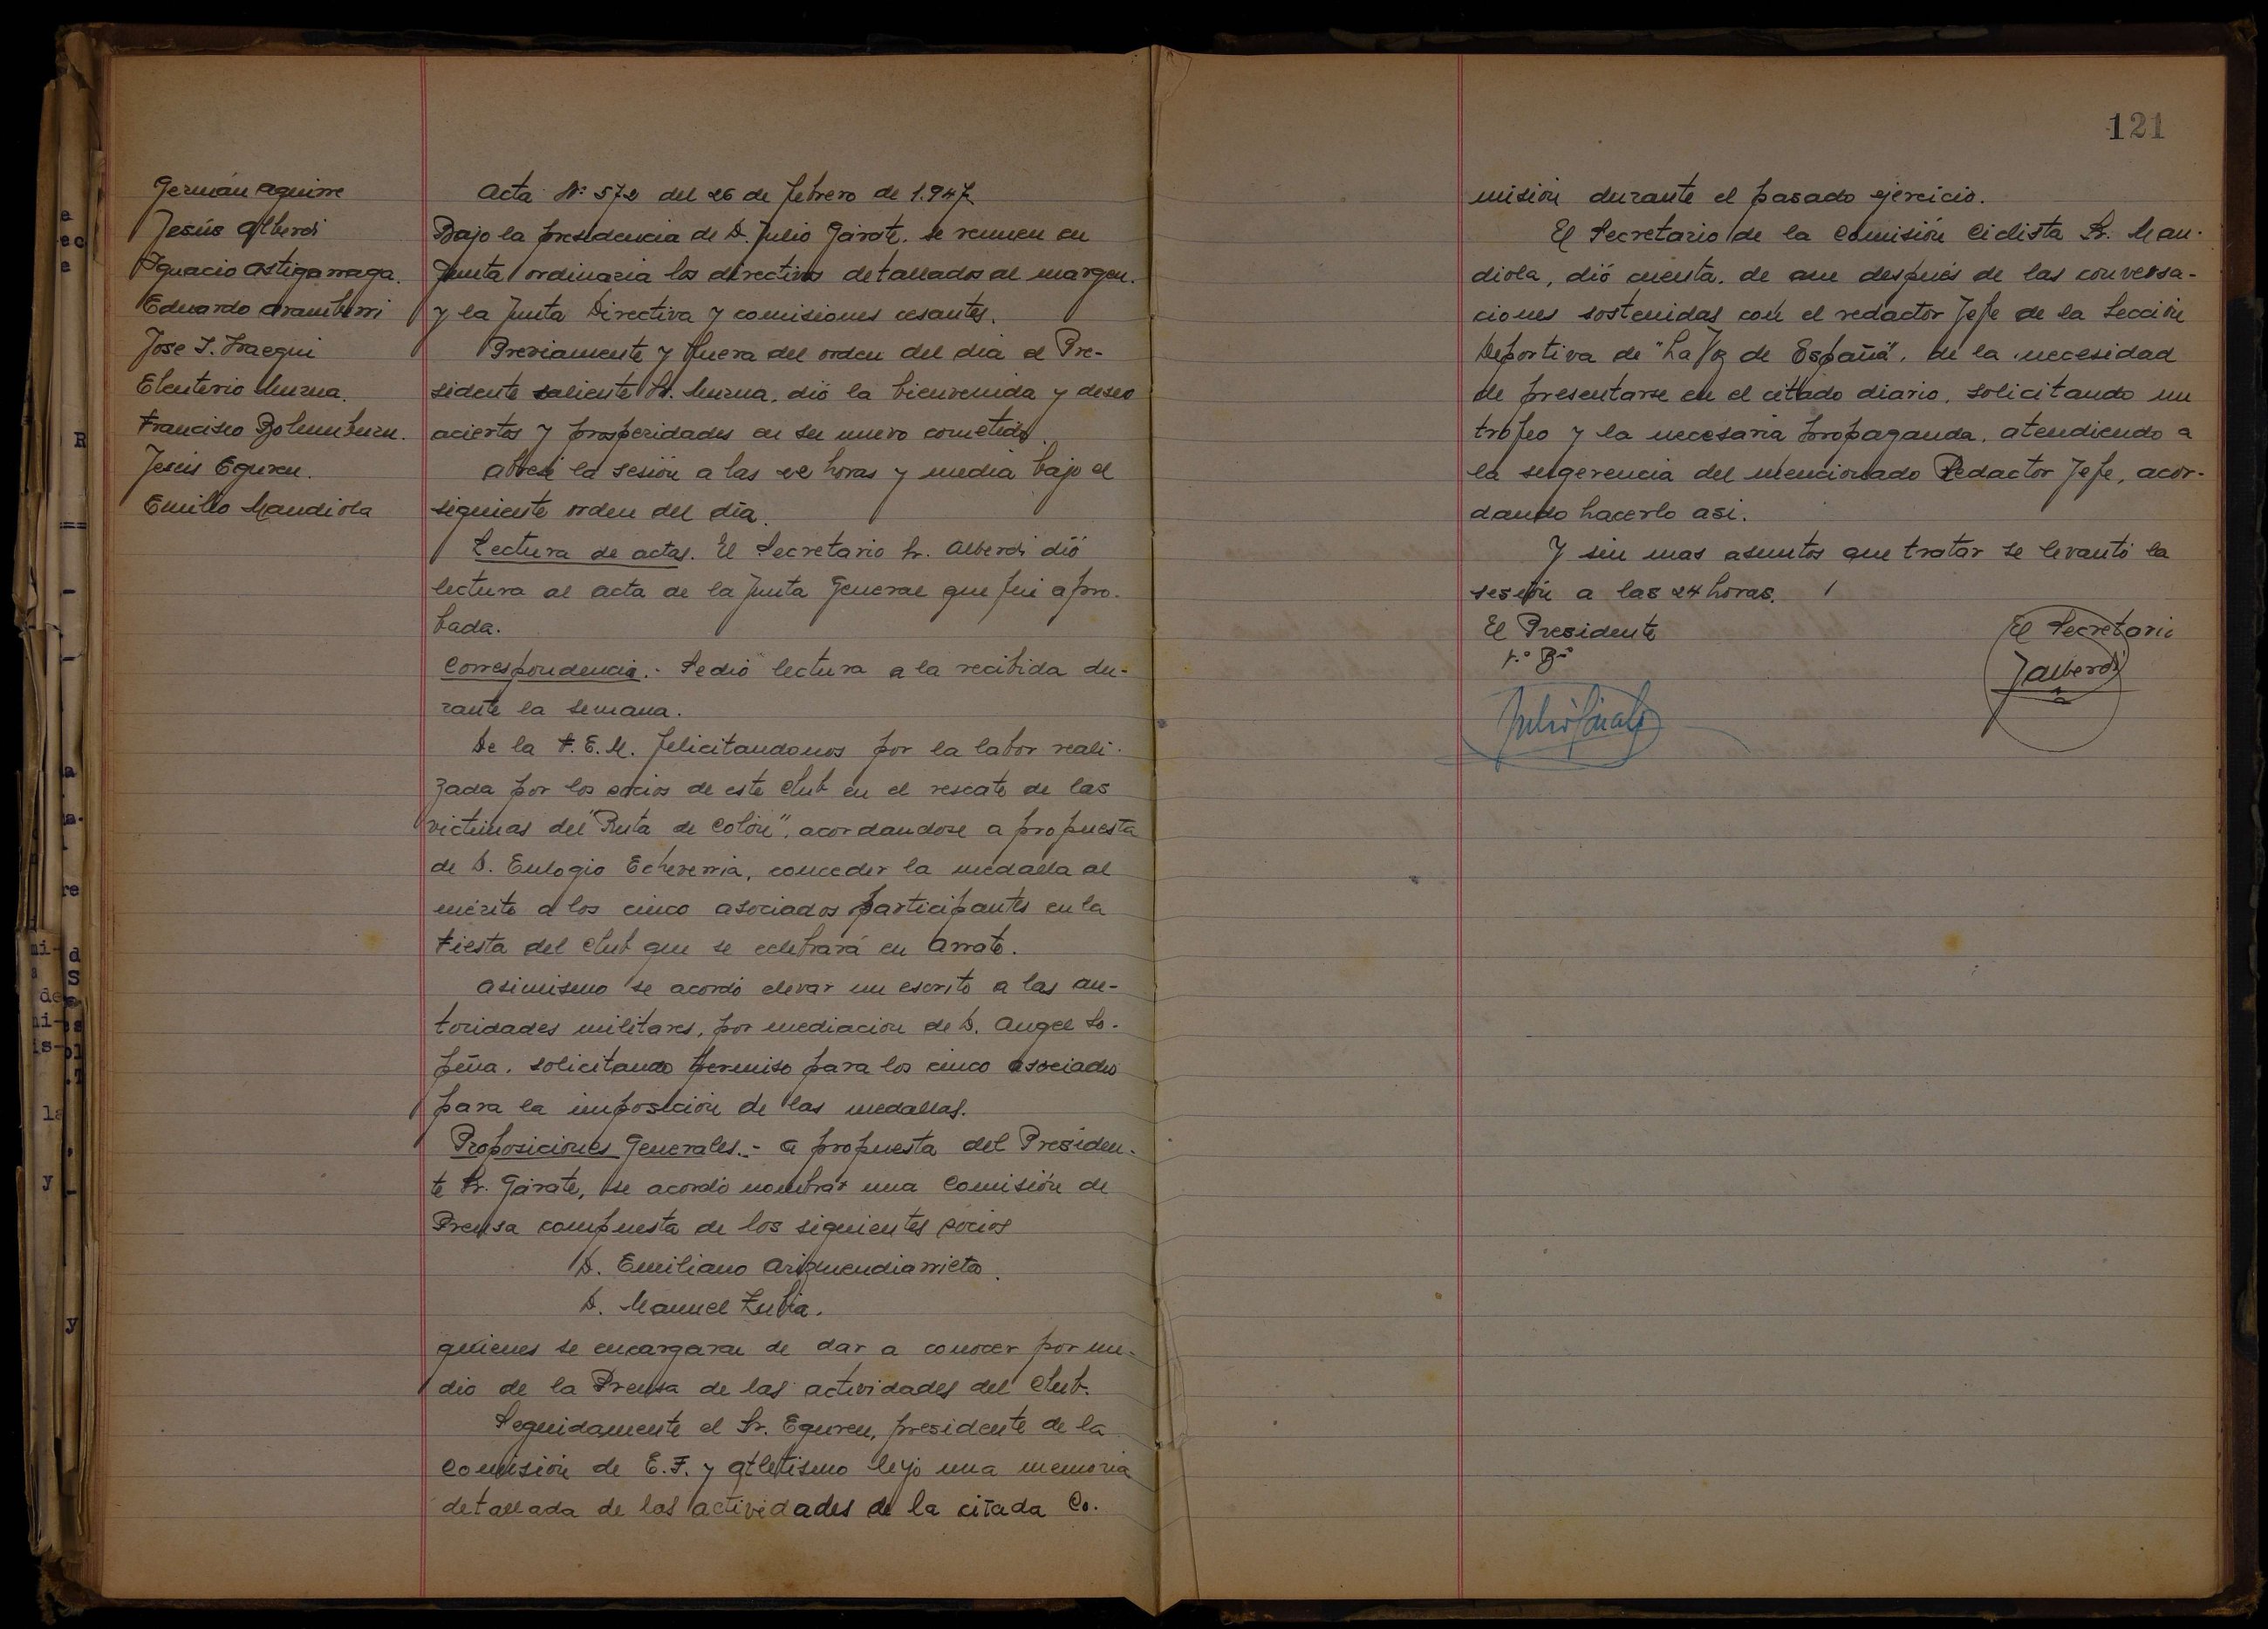 121
Germán Aguirre
Jesús Alberdi
Ignacio Astigarraga.
Eduardo Aramberri
Jose I. Iraegui
Eleuterio Murua.
Francisco Bolumburu.
Jesús Eguren.
Emilio Mandiola
Acta Nº 572 del 26 de febrero de 1.947
Bajo la presidencia de D. Julio Gárate. se reunen en
Junta ordinaria los directivos detallados al margen.
y la Junta Directiva y comisiones cesantes.
Previamente y fuera del orden del dia el Pre-
sidente saliente Sr. Murua, dió la bienvenida y deseo
aciertos y prosperidades en su nuevo cometido.
Abrese la sesión a las 22 horas y media bajo el
siguiente orden del día.
Lectura de actas. El Secretario Sr. Alberdi dió
lectura al acta de la Junta General que fué apro-
bada.
Correspondencia.- Se dió lectura a la recibida du-
rante la semana.
De la F.E.M. felicitandonos por la labor reali-
zada por los socios de este Club en el rescate de las
victimas del "Ruta de Colón", acordandose a propuesta
de D. Eulogio Echeverria, conceder la medalla al
mérito a los cinco asociados participantes en la
Fiesta del Club que se celebrará en Arrate.
Asimismo se acordó elevar un escrito a las au-
toridades militares, por mediacion de D. Angel So-
peña. solicitando permiso para los cinco asociados
para la imposición de las medallas.
Proposiciones Generales.- A propuesta del Presiden-
te Sr. Gárate, se acordó nombrar una Comisión de
Prensa compuesta de los siguientes socios
D. Emiliano Arizmendiarrieta.
D. Manuel Zubia.
quienes se encargaran de dar a conocer por me-
dio de la Prensa de las actividades del Club.
Seguidamente el Sr. Eguren, presidente de la
Comisión de E.F. y Atletismo leyó una memoria
detallada de las actividades de la citada Co-
misión durante el pasado ejercicio.
El Secretario de la Comisión Ciclista Sr. Man-
diola, dió cuenta. de que después de las conversa-
ciones sostenidas con el redactor Jefe de la Sección
Deportiva de "La Voz de España", de la necesidad
de presentarse en el citado diario, solicitando un
trofeo y la necesaria propaganda, atendiendo a
la sugerencia del mencionado Redactor Jefe, acor-
dando hacerlo asi.
Y sin mas asuntos que tratar se levantó la
sesión a las 24 horas.
El Presidente
Vº Bº
Julio Gárate
El Secretario
J Alberdi